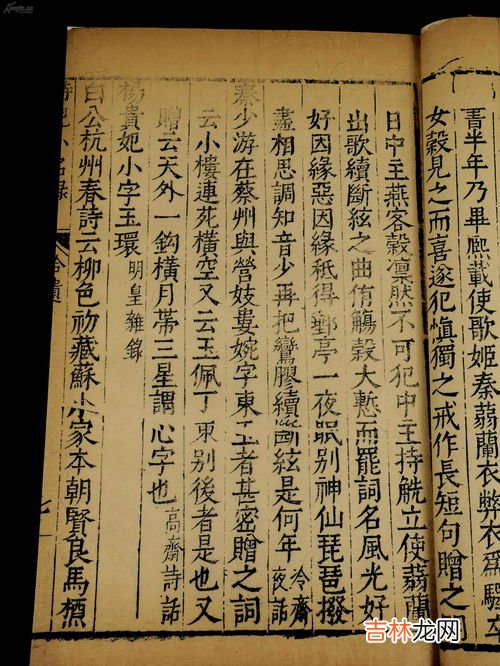 書半年乃畢熙載使歌姬秦蒻蘭衣弊衣為驛卒
女穀見之而喜遂犯慎獨之戒作長短句贈之明
日中主燕客穀凜然不可犯中主持觥立使蒻蘭
出歌續斷絃之曲侑觴穀大慙而罷詞名風光好
好因緣惡因緣秪得郵亭一夜眠别神仙琵琶撥
盡相思調知音少再把鸞膠續斷絃是何年 冷齋夜話
秦少游在蔡州與營妓婁婉字東玉者甚密贈之詞
云小樓連苑橫空又云玉佩丁東别後者是也又
贈云天外一鈎橫月帶三星謂心字也 高齋詩話
楊貴妃小字玉環 明皇雜錄
白公杭州春詩云柳色初藏蘇小家本朝賢良馬槱
侍兒小名錄 拾遺 七
吉林龙网